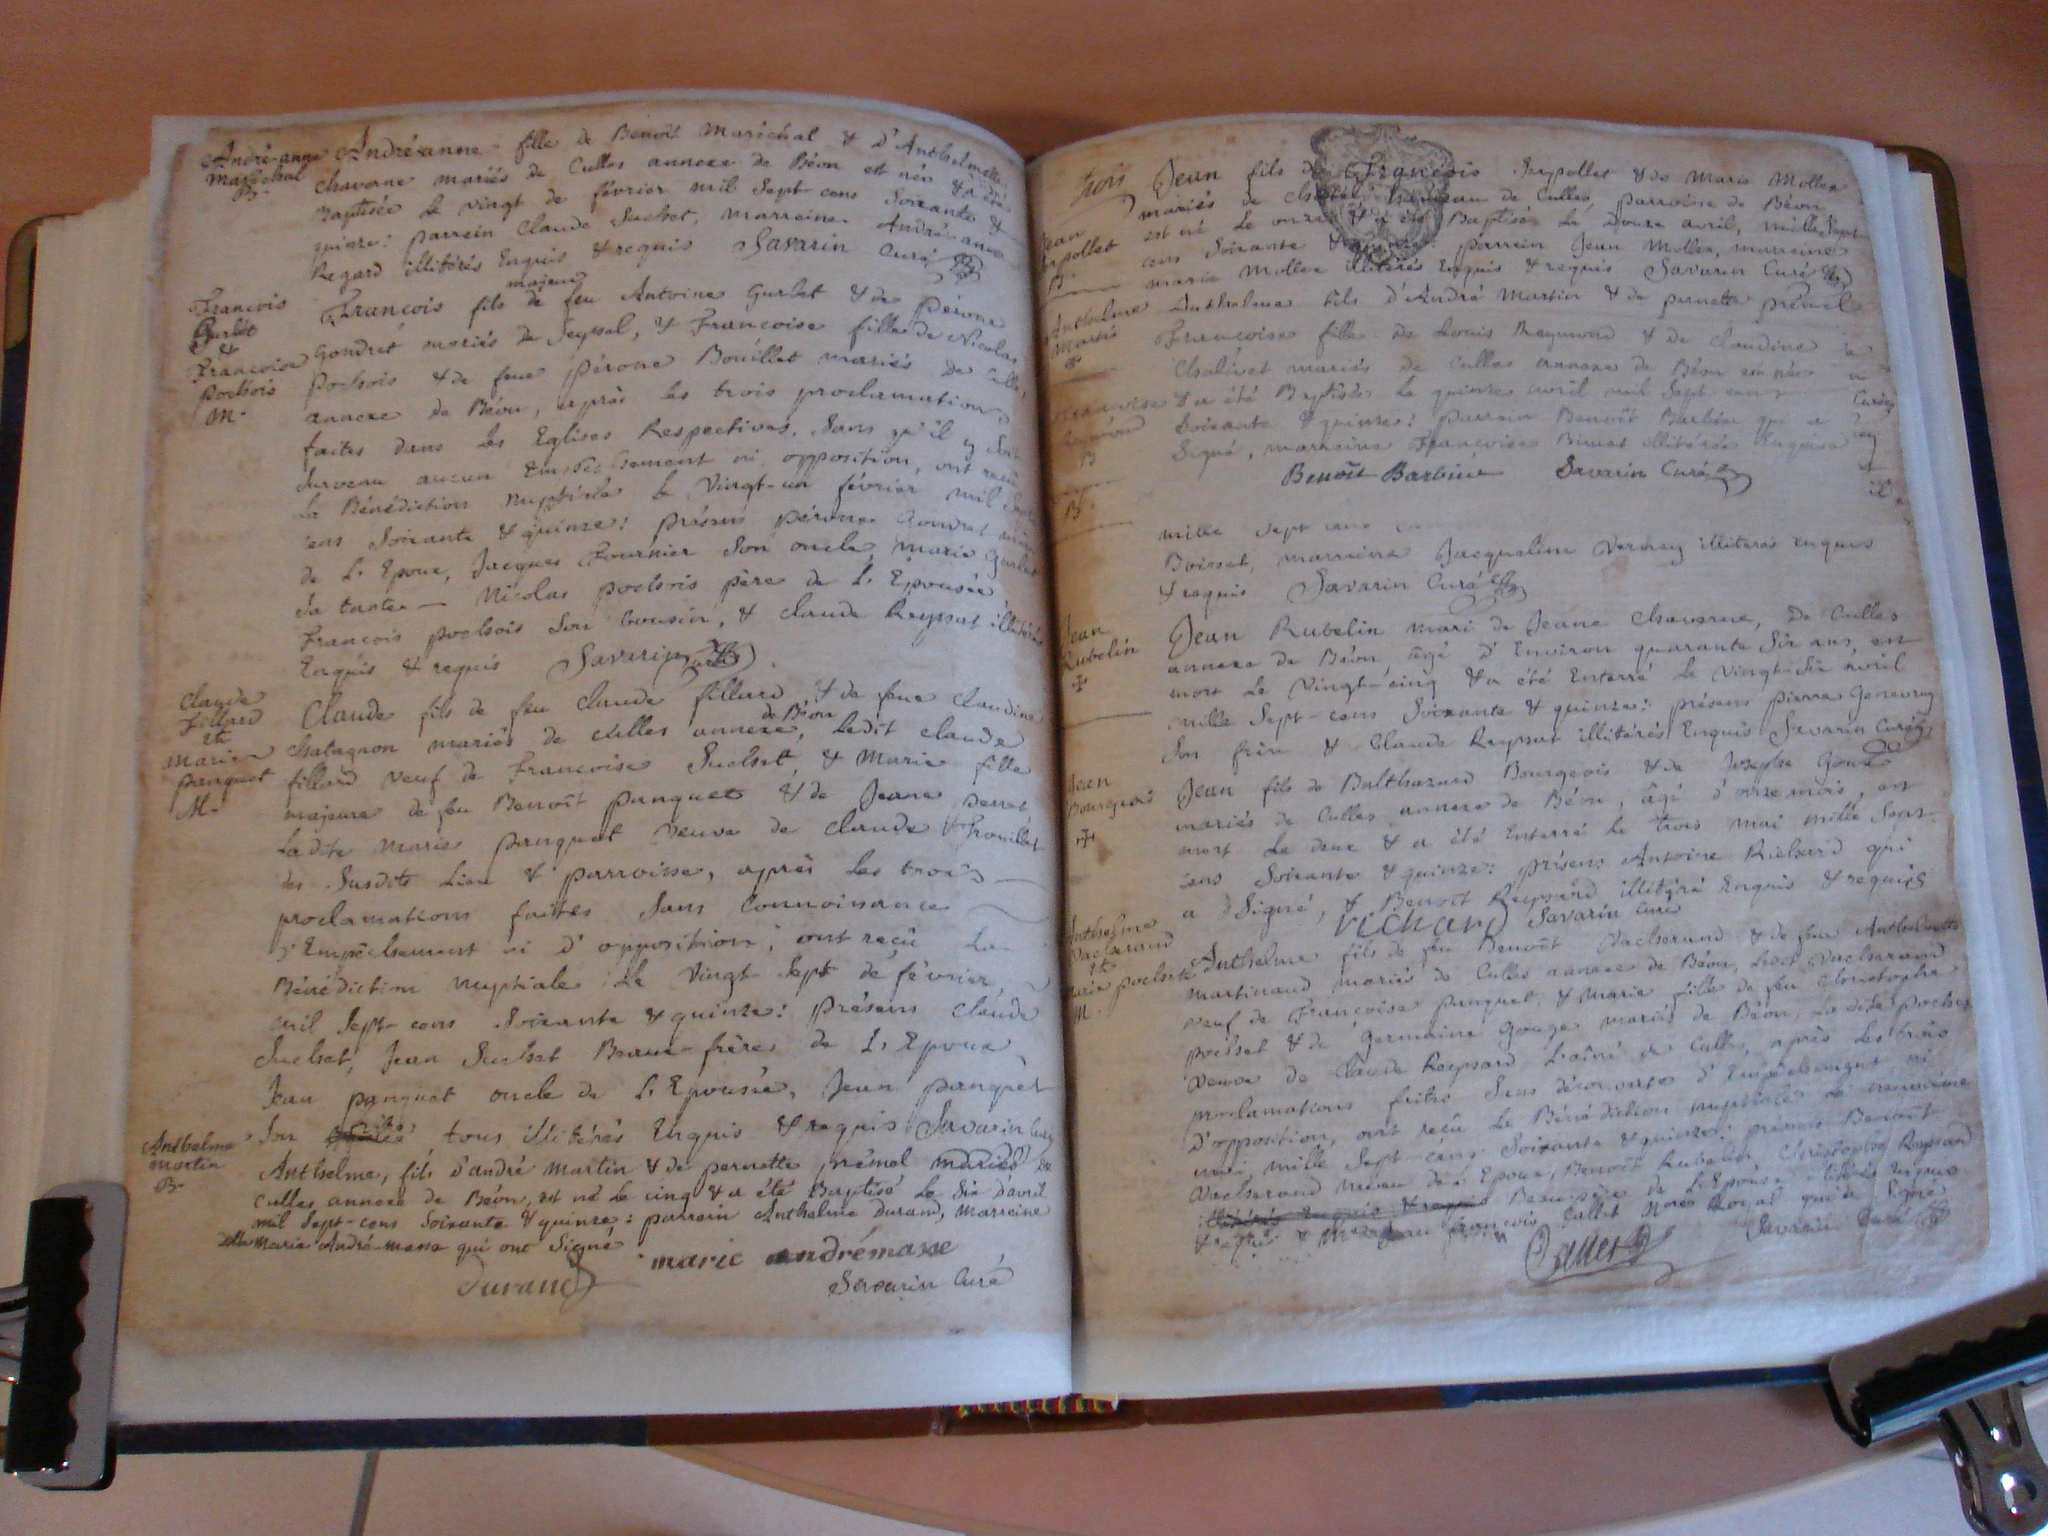 André-anne
Maréchal
B.
André-anne fille de Benoît Maréchal & d'Anthelmette
Chaverne mariés de Culles annexe de Béon est née & a été
Baptisée le vingt de février mil sept cens soixante &
quinze: parrein Claude Suchet, marreine André-anne
Regard illitérés Enquis & requis Savarin Curé
François
Gurlet
&
Françoise
pochois
M.
François fils majeur de feu Antoine Gurlet & de pérone
Gondret mariés de Seyssel, & Françoise fille de Nicolas
pochois & de feue pérone Bouillet mariés de Culles,
annexe de Béon, après les trois proclamations
faites dans les Eglises Respectives, Sans qu'il y soit
survenu aucun Empêchement ni opposition, ont reçu
la Bénédiction nuptiale le vingt-un février mil sept
cens soixante & quinze: présens pérone Gondret mère
de L'Epoux, Jacques Fournier son oncle, marie Gurlet
sa tante — Nicolas pochois père de L'Epousée
François pochois son Cousin, & claude Reypsat illitérés
Enquis & requis Savarin curé
Claude
fillard
&
Marie
panquet
M.
Claude fils de feu claude fillard & de feue Claudine
Chatagnon mariés de Culles annexe de Béon, Ledit claude
fillard veuf de Françoise Suchet, & Marie fille
majeure de feu Benoît panquet & de Jeane
Ladite Marie panquet veuve de claude Trouillet
des susdits Lieu & parroisse, après les trois
proclamations faites sans Connoissance
d'Empêchement ni d'opposition, ont reçu la
Bénédiction nuptiale le vingt sept de février
mil sept-cens soixante & quinze: présens claude
Suchet, Jean Suchet Beaux-frères de L'Epoux
Jean panquet oncle de L'Epousée, Jean panquet
son tous illitérés Enquis & requis Savarin Curé
Anthelme
Martin
B.
Anthelme, fils d'andré Martin & de pernette prémel mariés de
Culles annexe de Béon, est né le cinq & a été Baptisé le six d'avril
mil sept-cens soixante & quinze: parrein Anthelme Durand, marreine
Marie André-masse qui ont signé
marie andrémasse
Durand
Savarin Curé
trois
Jean
B.
Jean fils de François & de Marie Mollex
mariés de hameau de Culles, parroisse de Béon
est né le onze & a été Baptisé le Douze avril, mille sept
cens soixante & quinze: parrein Jean Mollex, marreine
marie Mollex illitérés Enquis & requis Savarin Curé
Anthelme
Martin
B.
Anthelme fils d'André Martin & de pernette prémel
Françoise
B
Françoise fille de Louis Reymond & de claudine
Chalivet mariés de Culles annexe de Béon est née
& a été Baptisée le quinze avril mil sept cens
soixante & quinze: parrein Benoît Barbin qui a
signé, marreine Françoise Binet illitérée Enquise
Benoît Barbin Savarin Curé
B.
mille sept cens
Boisset, marreine Jacqueline Vernay illitérés enquis
& requis Savarin Curé
Jean
Rubelin
✝
Jean Rubelin mari de Jeane Chaverne, de Culles
annexe de Béon, âgé d'Environ quarante six ans, est
mort le vingt-cinq & a été Enterré le vingt-six avril
mille sept-cens soixante & quinze: présens pierre Genevray
son frère & Claude Reypsat illitérés Enquis Savarin Curé
Jean
Bourgeois
✝
Jean fils de Balthazard Bourgeois & de Josephe
mariés de Culles annexe de Béon, âgé d'onze mois, est
mort le deux & a été Enterré le trois mai mille sept-
cens soixante & quinze: présens Antoine Richard qui
a signé, & Benoît Reypsard illitéré Enquis & requis
richard Savarin Curé
Anthelme
Vacherand
&
Marie pochet
M.
Anthelme fils de feu Benoît Vacherand & de feue Anthelmette
Martinaud mariés de Culles annexe de Béon, Ledit Vacherand
veuf de Françoise panquet, & Marie fille de feu Christophe
pochet & de Germaine Gouge mariés de Béon, Ladite pochet
veuve de Claude Reypsard L'aîné de Culles, après les trois
proclamations faites sans découverte d'Empêchement ni
d'opposition, ont reçu la Bénédiction nuptiale le
mai mille sept-cens soixante & quinze: présens Benoît
Vacherand neveu de L'Epoux, Benoît Rubelin, Christophe Reypsard
Beau-père de L'Epouse illitérés Enquis
& requis & François Callet Noe Royal qui a signé
Callet Savarin Curé